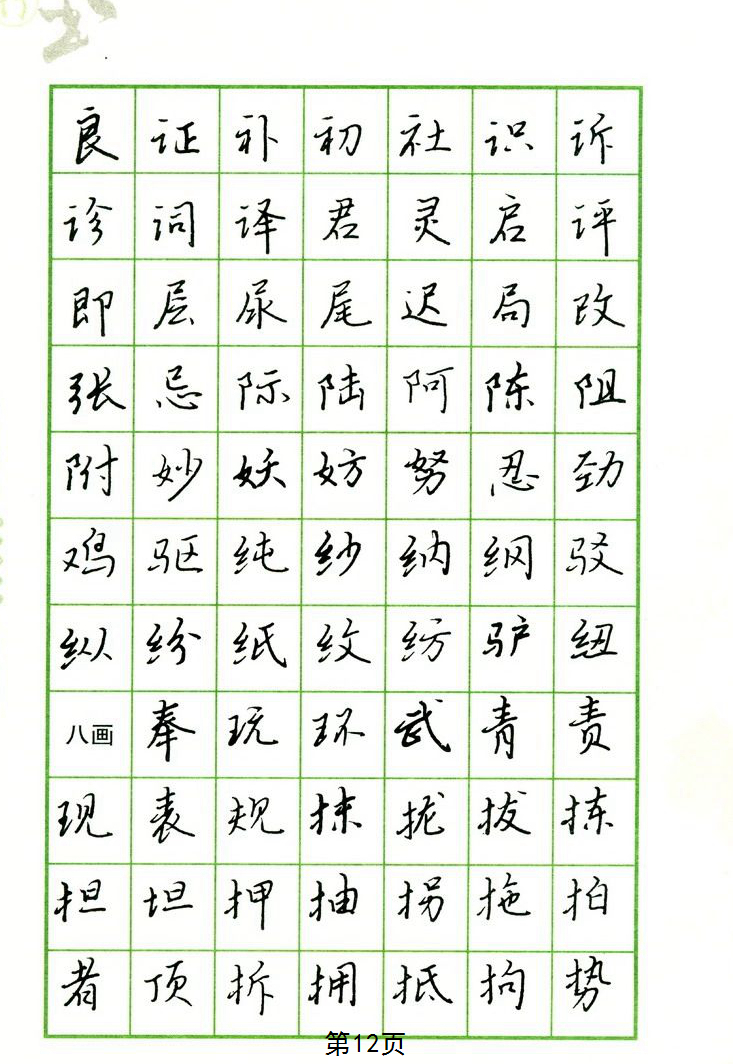 良 证 补 初 社 识 诉
诊 词 译 君 灵 启 评
即 层 尿 尾 迟 局 改
张 忌 际 陆 阿 陈 阻
附 妙 妖 妨 努 忍 劲
鸡 驱 纯 纱 纳 纲 驳
纵 纷 纸 纹 纺 驴 纽
八画 奉 玩 环 武 青 责
现 表 规 抹 拢 拔 拣
担 坦 押 抽 拐 拖 拍
者 顶 拆 拥 抵 拘 势
第12页